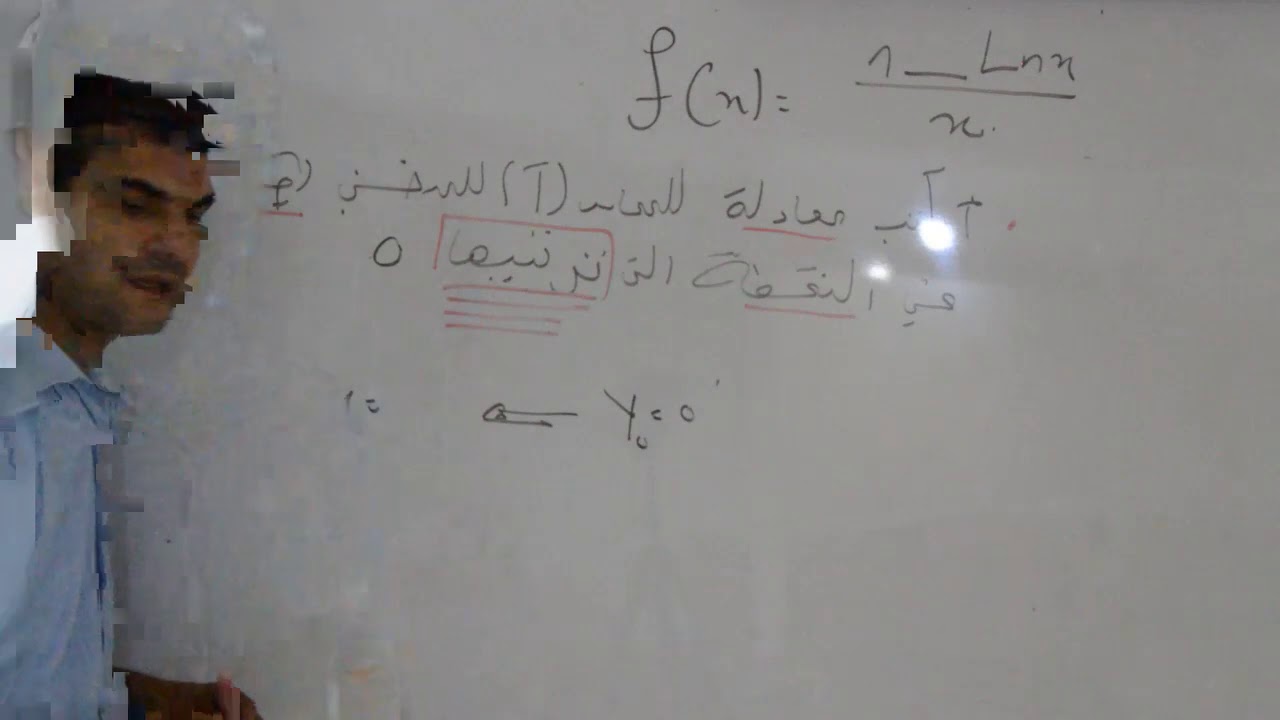 f(x) = 1 — Lnx / x
1 أكتب معادلة للمماس (T) للمنحنى (C)
في النقطة التي ترتيبها 0
y₀ = 0 ⇐ 1 =